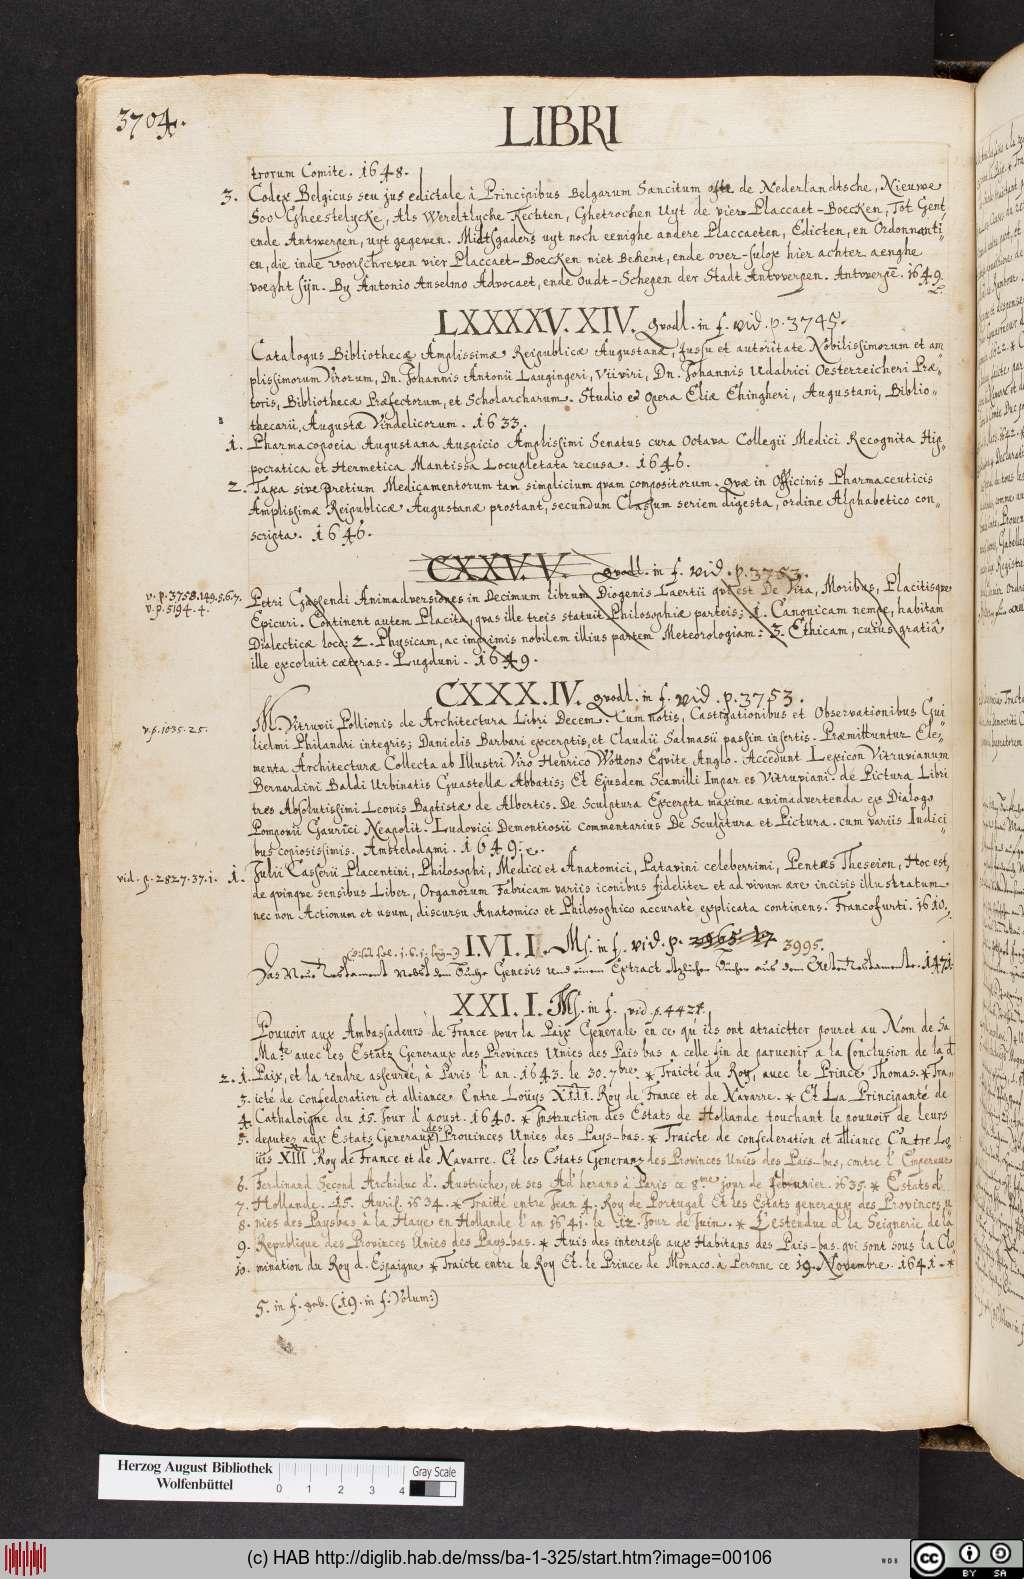 3704.
LIBRI
trorum Comite. 1648.
3. Codex Belgicus seu jus edictale à Principibus Belgarum Sancitum ofte de Nederlandtsche, Nieuwe
Soo Gheestelycke, Als Wereltlycke Rechten, Ghetrocken Uyt de vier Placcaet-Boecken, Tot Gent
ende Antwerpen, uyt gegeven. Midtsgaders uyt noch eenighe andere Placcaeten, Edicten, en Ordonnanti-
en, die inde voorschreven vier Placcaet-Boecken niet Bekent, ende over-sulox hier achter aenghe
voeght sijn. By Antonio Anselmo Advocaet, ende Oudt-Schepen der Stadt Antwerpen. Antwerpē. 1649.
LXXXXV. XIV. quodl. in f. vid. p. 3745.
Catalogus Bibliothecæ Amplissimæ Reipublicæ Augustanæ, Jussu et autoritate Nobilissimorum et am
plissimorum Virorum, Dn. Johannis Antonii Laugingeri, Viiviri, Dn. Johannis Udalrici Oesterreicheri Præ-
toris, Bibliothecæ Præfectorum, et Scholarcharum. Studio et Opera Eliæ Ehingheri, Augustani, Biblio-
thecarii, Augustæ Vindelicorum. 1633.
1. Pharmacopoeia Augustana Auspicio Amplissimi Senatus cura Octava Collegii Medici Recognita Hip-
pocratica et Hermetica Mantissa Locupletata recusa. 1646.
2. Taxa sive pretium Medicamentorum tam simplicium quam compositorum. quæ in Officinis Pharmaceuticis
Amplissimæ Reipublicæ Augustanæ prostant, secundum Classum seriem digesta, ordine Alphabetico con-
scripta. 1646.
CXXV. V. quodl. in f. vid. p. 3753.
v. p. 3758.149.5.6.7.
v. p. 5194. 4.
Petri Gassendi Animadversiones in Decimum librum Diogenis Laertii qui est De Vita, Moribus, Placitisque
Epicuri. Continent autem Placita, quas ille treis statuit Philosophiæ parteis; 1. Canonicam nempe, habitam
Dialecticæ loco; 2. Physicam, ac imprimis nobilem illius partem Meteorologiam: 3. Ethicam, cuius gratiâ
ille excoluit cæteras. Lugduni. 1649.
CXXX. IV. quodl. in f. vid. p. 3753.
v. p. 1035. 25.
M. Vitruvii Pollionis de Architectura Libri Decem. Cum notis, Castigationibus et Observationibus Gui
lielmi Philandri integris; Danielis Barbari excerptis, et Claudii Salmasii passim insertis. Præmittuntur Ele-
menta Architecturæ Collecta ab Illustri Viro Henrico Wottono Equite Anglo. Accedunt Lexicon Vitruvianum
Bernardini Baldi Urbinatis Guastellæ Abbatis; Et Ejusdem Scamilli Impar es Vitruviani. de Pictura Libri
tres Absolutissimi Leonis Baptistæ de Albertis. De Sculptura Excerpta maxime animadvertenda ex Dialogo
Pomponii Gaurici Neapolit. Ludovici Demontiosii Commentarius De Sculptura et Pictura. cum variis Indici-
bus copiosissimis. Amstelodami. 1649.
vid. p. 2827. 37. 1.
1. Julii Casserii Placentini, Philosophi, Medici et Anatomici, Patavini celeberrimi, Pentæs Theseion, Hoc est,
de quinque sensibus Liber, Organorum Fabricam variis iconibus fideliter et ad vivum ære incisis illustratum
nec non Actionum et usum, discursu Anatomico et Philosophico accuratè explicata continens. Francofurti. 1610.
IVI. I. Ms. in f. vid. p. 3995.
Das Neue Testament nebst dem Buche Genesis und einem Extract etzlicher Bücher aus dem Alten Testamente. 1471.
XXI. I. Ms. in f. vid. p. 4424.
Pouuoir aux Ambassadeurs de France pour la Paix Generale en ce qu'ils ont atraictter pouret au Nom de Sa
Ma.te avec les Estatz Generaux des Provinces Unies des Pais bas a celle fin de paruenir a la Conclusion de lad
2. 1. Paix, et la rendre asseurée, à Paris l'an. 1643. le 30. 7bre. * Traicté du Roy, avec le Prince Thomas. * Tra-
3. icté de confederation et alliance Entre Loüys XIII. Roy de France et de Navarre. * Et La Principante de
4. Cathaloigne du 15. Jour d'aoust. 1640. * Instruction des Estats de Hollande touchant le pouuoir de leurs
5. deputez aux Estats Generaux des Prouinces Unies des Pays-bas. * Traicte de confederation et alliance Entre Lo-
üis XIII Roy de France et de Navarre. Et les Estats Generaux des Provinces Unies des Pais-bas, contre l'Empereur
6. Ferdinand Second Archiduc d'Austriche, et ses Ad'herans à Paris ce 8me jour de feburier. 1635. * Estats d'
7. Hollande. 15. Auril. 1634. * Traitté entre Jean 4. Roy de Portugal Et les Estats generaux des Provinces u
8. nies des Paysbas à la Haye en Hollande l'an 1641. le 12. Jour de Juin. * L'estendue d la Seignerie de la
9. Republique des Provinces Unies des Pays-bas. * Auis des interesse aux Habitans des Pais-bas qui sont sous la Do
10. mination du Roy d. Espaigne * Traicte entre le Roy Et. le Prince de Monaco. à Peronne ce 19. Novembre. 1641. *
5. in f. (19. in f. Volum:)
Herzog August Bibliothek
Wolfenbüttel
0 1 2 3 4
Gray Scale
(c) HAB http://diglib.hab.de/mss/ba-1-325/start.htm?image=00106
WDB
cc BY SA